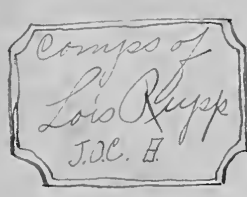 Comps of
Lois Rupp
J.O.C.